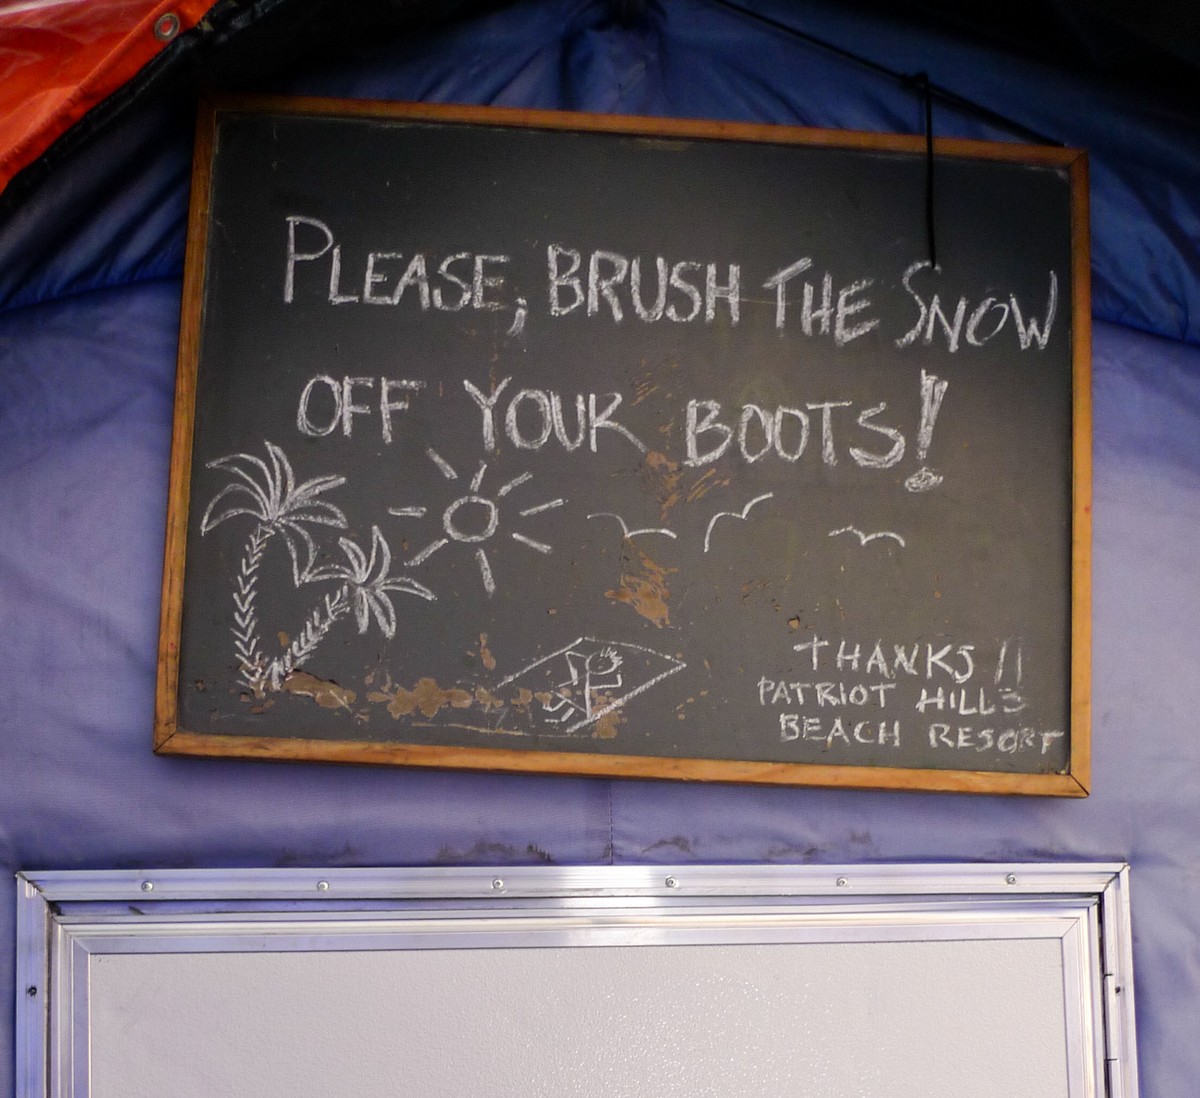 PLEASE, BRUSH THE SNOW
OFF YOUR BOOTS!
THANKS!!
PATRIOT HILLS
BEACH RESORT